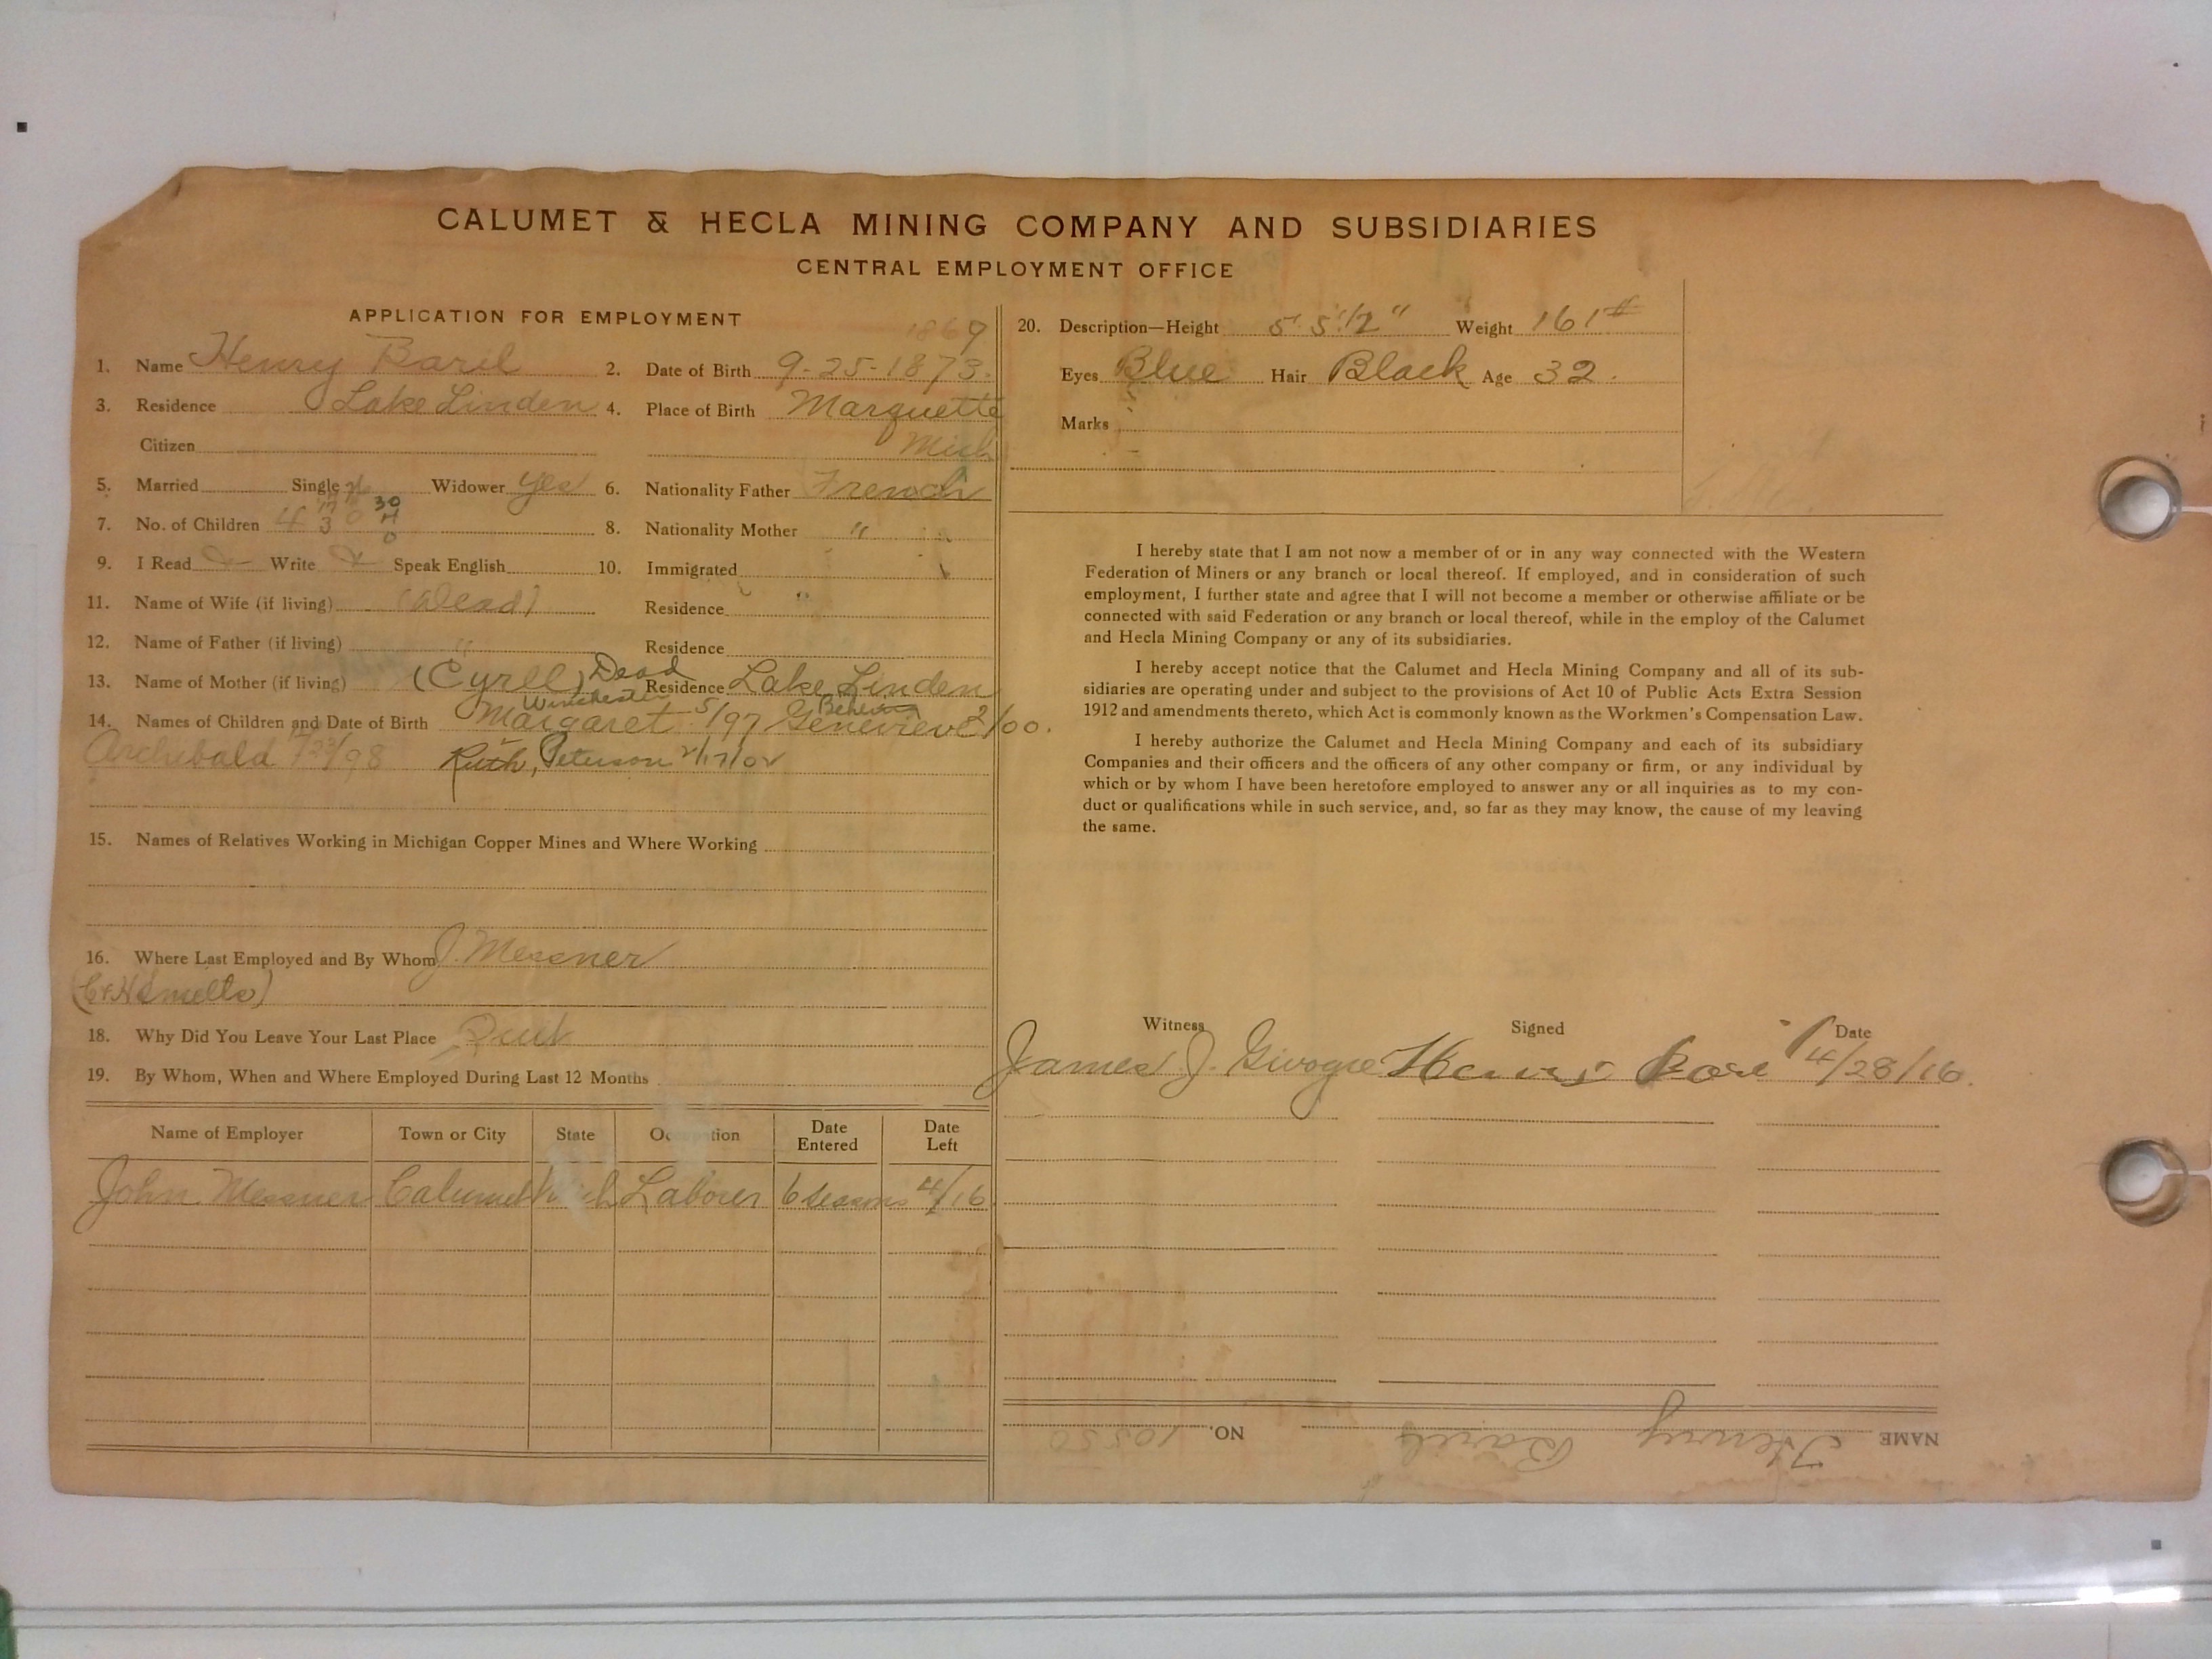 CALUMET & HECLA MINING COMPANY AND SUBSIDIARIES
CENTRAL EMPLOYMENT OFFICE
APPLICATION FOR EMPLOYMENT
1869
1. Name Henry Baril 2. Date of Birth 9-25-1873.
3. Residence Lake Linden 4. Place of Birth Marquette
Citizen Mich
5. Married Single Widower yes 6. Nationality Father French
7. No. of Children 4 3 0 30 4 0 8. Nationality Mother "
9. I Read Write Speak English 10. Immigrated
11. Name of Wife (if living) (Dead) Residence
12. Name of Father (if living) " Residence
13. Name of Mother (if living) (Cyrell) Dead Residence Lake Linden
Winchester
14. Names of Children and Date of Birth Margaret 5/97 Genevieve 2/00.
Archibald /98 Ruth, Peterson 2/17/02
15. Names of Relatives Working in Michigan Copper Mines and Where Working
16. Where Last Employed and By Whom J. Messner
(C&H Smelto)
18. Why Did You Leave Your Last Place Quit
19. By Whom, When and Where Employed During Last 12 Months
Name of Employer Town or City State Occupation Date Entered Date Left
John Messner Calumet Mich Laborer 6 seasons 4/16
20. Description—Height 5' 5 1/2" Weight 161#
Eyes Blue Hair Black Age 32.
Marks
I hereby state that I am not now a member of or in any way connected with the Western
Federation of Miners or any branch or local thereof. If employed, and in consideration of such
employment, I further state and agree that I will not become a member or otherwise affiliate or be
connected with said Federation or any branch or local thereof, while in the employ of the Calumet
and Hecla Mining Company or any of its subsidiaries.
I hereby accept notice that the Calumet and Hecla Mining Company and all of its sub-
sidiaries are operating under and subject to the provisions of Act 10 of Public Acts Extra Session
1912 and amendments thereto, which Act is commonly known as the Workmen's Compensation Law.
I hereby authorize the Calumet and Hecla Mining Company and each of its subsidiary
Companies and their officers and the officers of any other company or firm, or any individual by
which or by whom I have been heretofore employed to answer any or all inquiries as to my con-
duct or qualifications while in such service, and, so far as they may know, the cause of my leaving
the same.
Witness Signed Date
James J. Givogre Henry Baril 4/28/16.
NAME Henry Baril NO. 10550